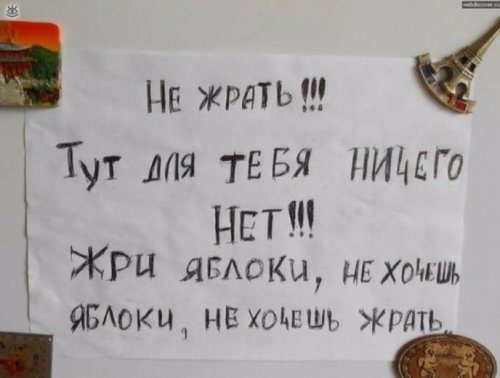 webdiscover.ru
НЕ ЖРАТЬ!!!
ТУТ ДЛЯ ТЕБЯ НИЧЕГО
НЕТ!!!
ЖРИ ЯБЛОКИ, НЕ ХОЧЕШЬ
ЯБЛОКИ, НЕ ХОЧЕШЬ ЖРАТЬ.